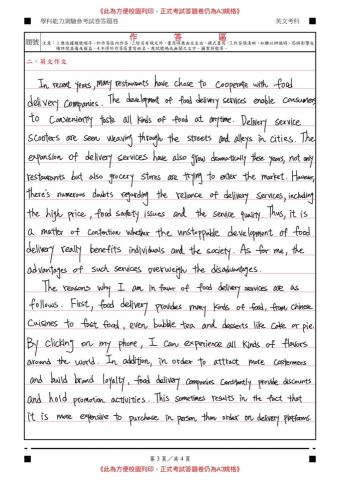 《此為方便校園列印,正式考試答題卷仍為A3規格》
學科能力測驗參考試卷答題卷 英文考科
作 答 區
題號
二、英文作文
In recent years, many restaurants have chose to cooperate with food
delivery companies. The development of food delivery services enable consumers
to conveniently taste all kinds of food at anytime. Delivery service
scooters are seen weaving through the streets and alleys in cities. The
expansion of delivery services have also grow dramatically these years, not only
restaurants but also grocery stores are trying to enter the market. However,
there's numerous doubts regarding the reliance of delivery services, including
the high price, food safety issues and the service quality. Thus, it is
a matter of contention whether the unstoppable development of food
delivery really benefits individuals and the society. As for me, the
advantages of such services overweigh the disadvantages.
The reasons why I am in favor of food delivery services are as
follows. First, food delivery provides many kinds of food, from Chinese
Cuisines to fast food, even bubble tea and desserts like cake or pie.
By clicking on my phone, I can experience all kinds of flavors
around the world. In addition, in order to attract more costomers
and build brand loyalty, food delivery companies constantly provide discounts
and hold promotion activities. This sometimes results in the fact that
it is more expensive to purchase in person than order on delivery platforms.
第 3 頁 / 共 4 頁
《此為方便校園列印,正式考試答題卷仍為A3規格》